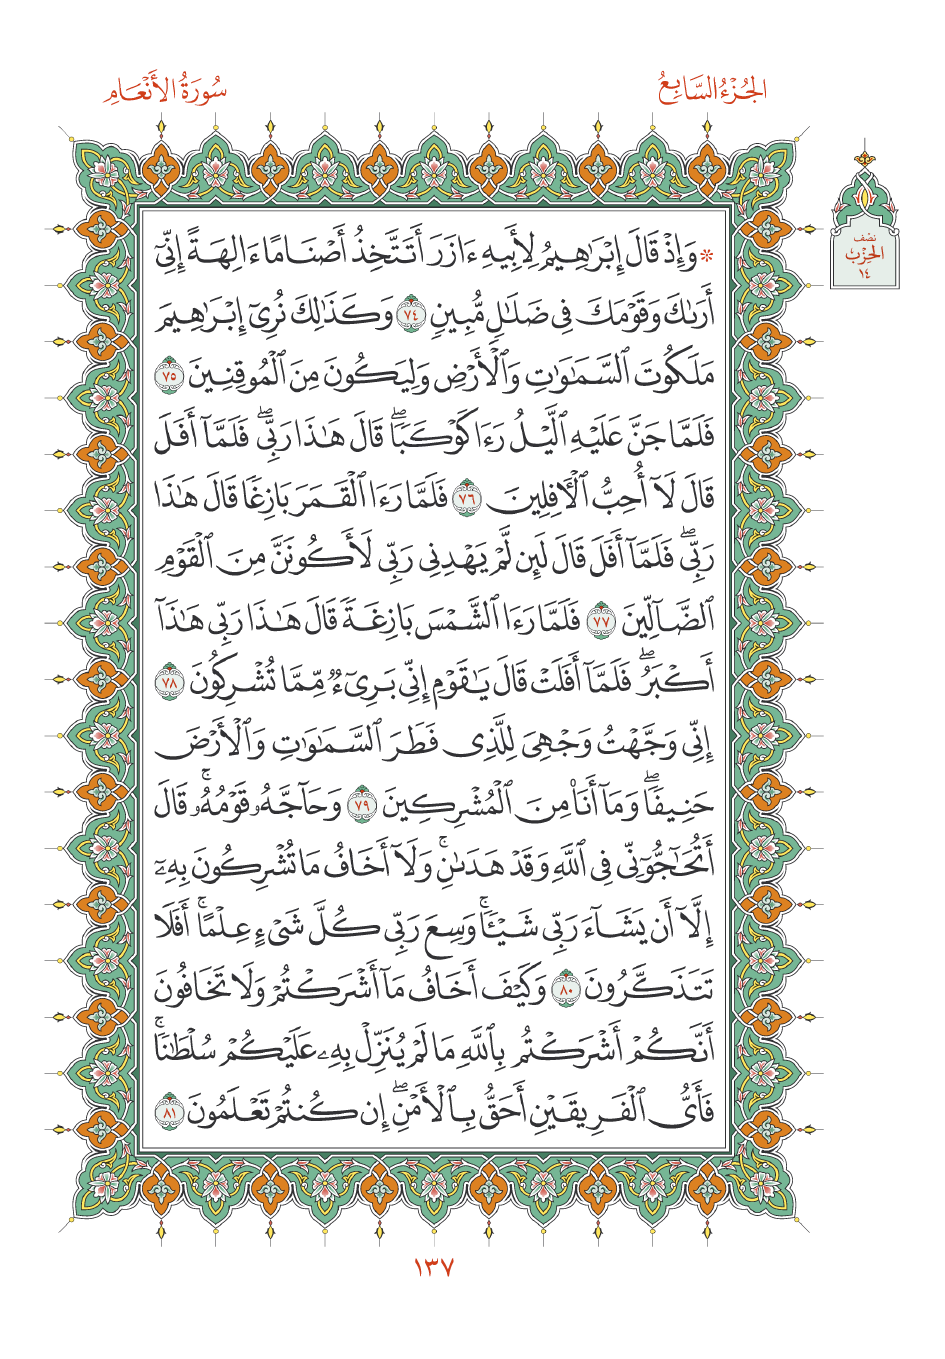 الجُزْءُ السَّابِعُ
سُورَةُ الأَنْعَامِ
۞ وَإِذۡ قَالَ إِبۡرَٰهِيمُ لِأَبِيهِ ءَازَرَ أَتَتَّخِذُ أَصۡنَامًا ءَالِهَةً إِنِّيٓ
أَرَىٰكَ وَقَوۡمَكَ فِي ضَلَٰلٖ مُّبِينٖ ٧٤ وَكَذَٰلِكَ نُرِيٓ إِبۡرَٰهِيمَ
مَلَكُوتَ ٱلسَّمَٰوَٰتِ وَٱلۡأَرۡضِ وَلِيَكُونَ مِنَ ٱلۡمُوقِنِينَ ٧٥
فَلَمَّا جَنَّ عَلَيۡهِ ٱلَّيۡلُ رَءَا كَوۡكَبٗاۖ قَالَ هَٰذَا رَبِّيۖ فَلَمَّآ أَفَلَ
قَالَ لَآ أُحِبُّ ٱلۡأٓفِلِينَ ٧٦ فَلَمَّا رَءَا ٱلۡقَمَرَ بَازِغٗا قَالَ هَٰذَا
رَبِّيۖ فَلَمَّآ أَفَلَ قَالَ لَئِن لَّمۡ يَهۡدِنِي رَبِّي لَأَكُونَنَّ مِنَ ٱلۡقَوۡمِ
ٱلضَّآلِّينَ ٧٧ فَلَمَّا رَءَا ٱلشَّمۡسَ بَازِغَةٗ قَالَ هَٰذَا رَبِّي هَٰذَآ
أَكۡبَرُۖ فَلَمَّآ أَفَلَتۡ قَالَ يَٰقَوۡمِ إِنِّي بَرِيٓءٞ مِّمَّا تُشۡرِكُونَ ٧٨
إِنِّي وَجَّهۡتُ وَجۡهِيَ لِلَّذِي فَطَرَ ٱلسَّمَٰوَٰتِ وَٱلۡأَرۡضَ
حَنِيفٗاۖ وَمَآ أَنَا۠ مِنَ ٱلۡمُشۡرِكِينَ ٧٩ وَحَآجَّهُۥ قَوۡمُهُۥۚ قَالَ
أَتُحَٰٓجُّوٓنِّي فِي ٱللَّهِ وَقَدۡ هَدَىٰنِۚ وَلَآ أَخَافُ مَا تُشۡرِكُونَ بِهِۦٓ
إِلَّآ أَن يَشَآءَ رَبِّي شَيۡـٔٗاۚ وَسِعَ رَبِّي كُلَّ شَيۡءٍ عِلۡمًاۚ أَفَلَا
تَتَذَكَّرُونَ ٨٠ وَكَيۡفَ أَخَافُ مَآ أَشۡرَكۡتُمۡ وَلَا تَخَافُونَ
أَنَّكُمۡ أَشۡرَكۡتُم بِٱللَّهِ مَا لَمۡ يُنَزِّلۡ بِهِۦ عَلَيۡكُمۡ سُلۡطَٰنٗاۚ
فَأَيُّ ٱلۡفَرِيقَيۡنِ أَحَقُّ بِٱلۡأَمۡنِۖ إِن كُنتُمۡ تَعۡلَمُونَ ٨١
نصف
الحزب
١٤
١٣٧